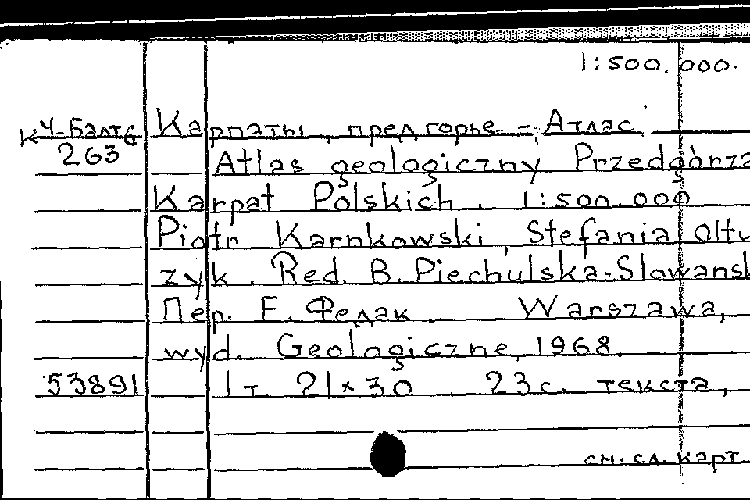 1:500.000.
Карпаты, предгорье - Атлас.
263 Atlas geologiczny Przedgórza
Karpat Polskich. 1:500.000
Piotr Karnkowski, Stefania Ołtu
zyk. Red. B. Piechulska-Słowansk
Пер. Е. Федак Warszawa,
wyd. Geologiczne, 1968.
53891 1 т. 21×30 23 с. текста,
см. сл. карт.